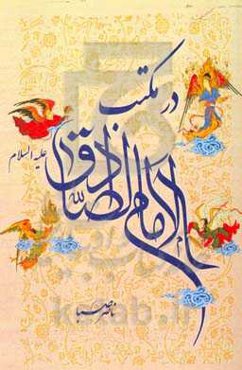 در مکتب
الامام الصادق
علیه السلام
ناصر صبا
ketab.ir